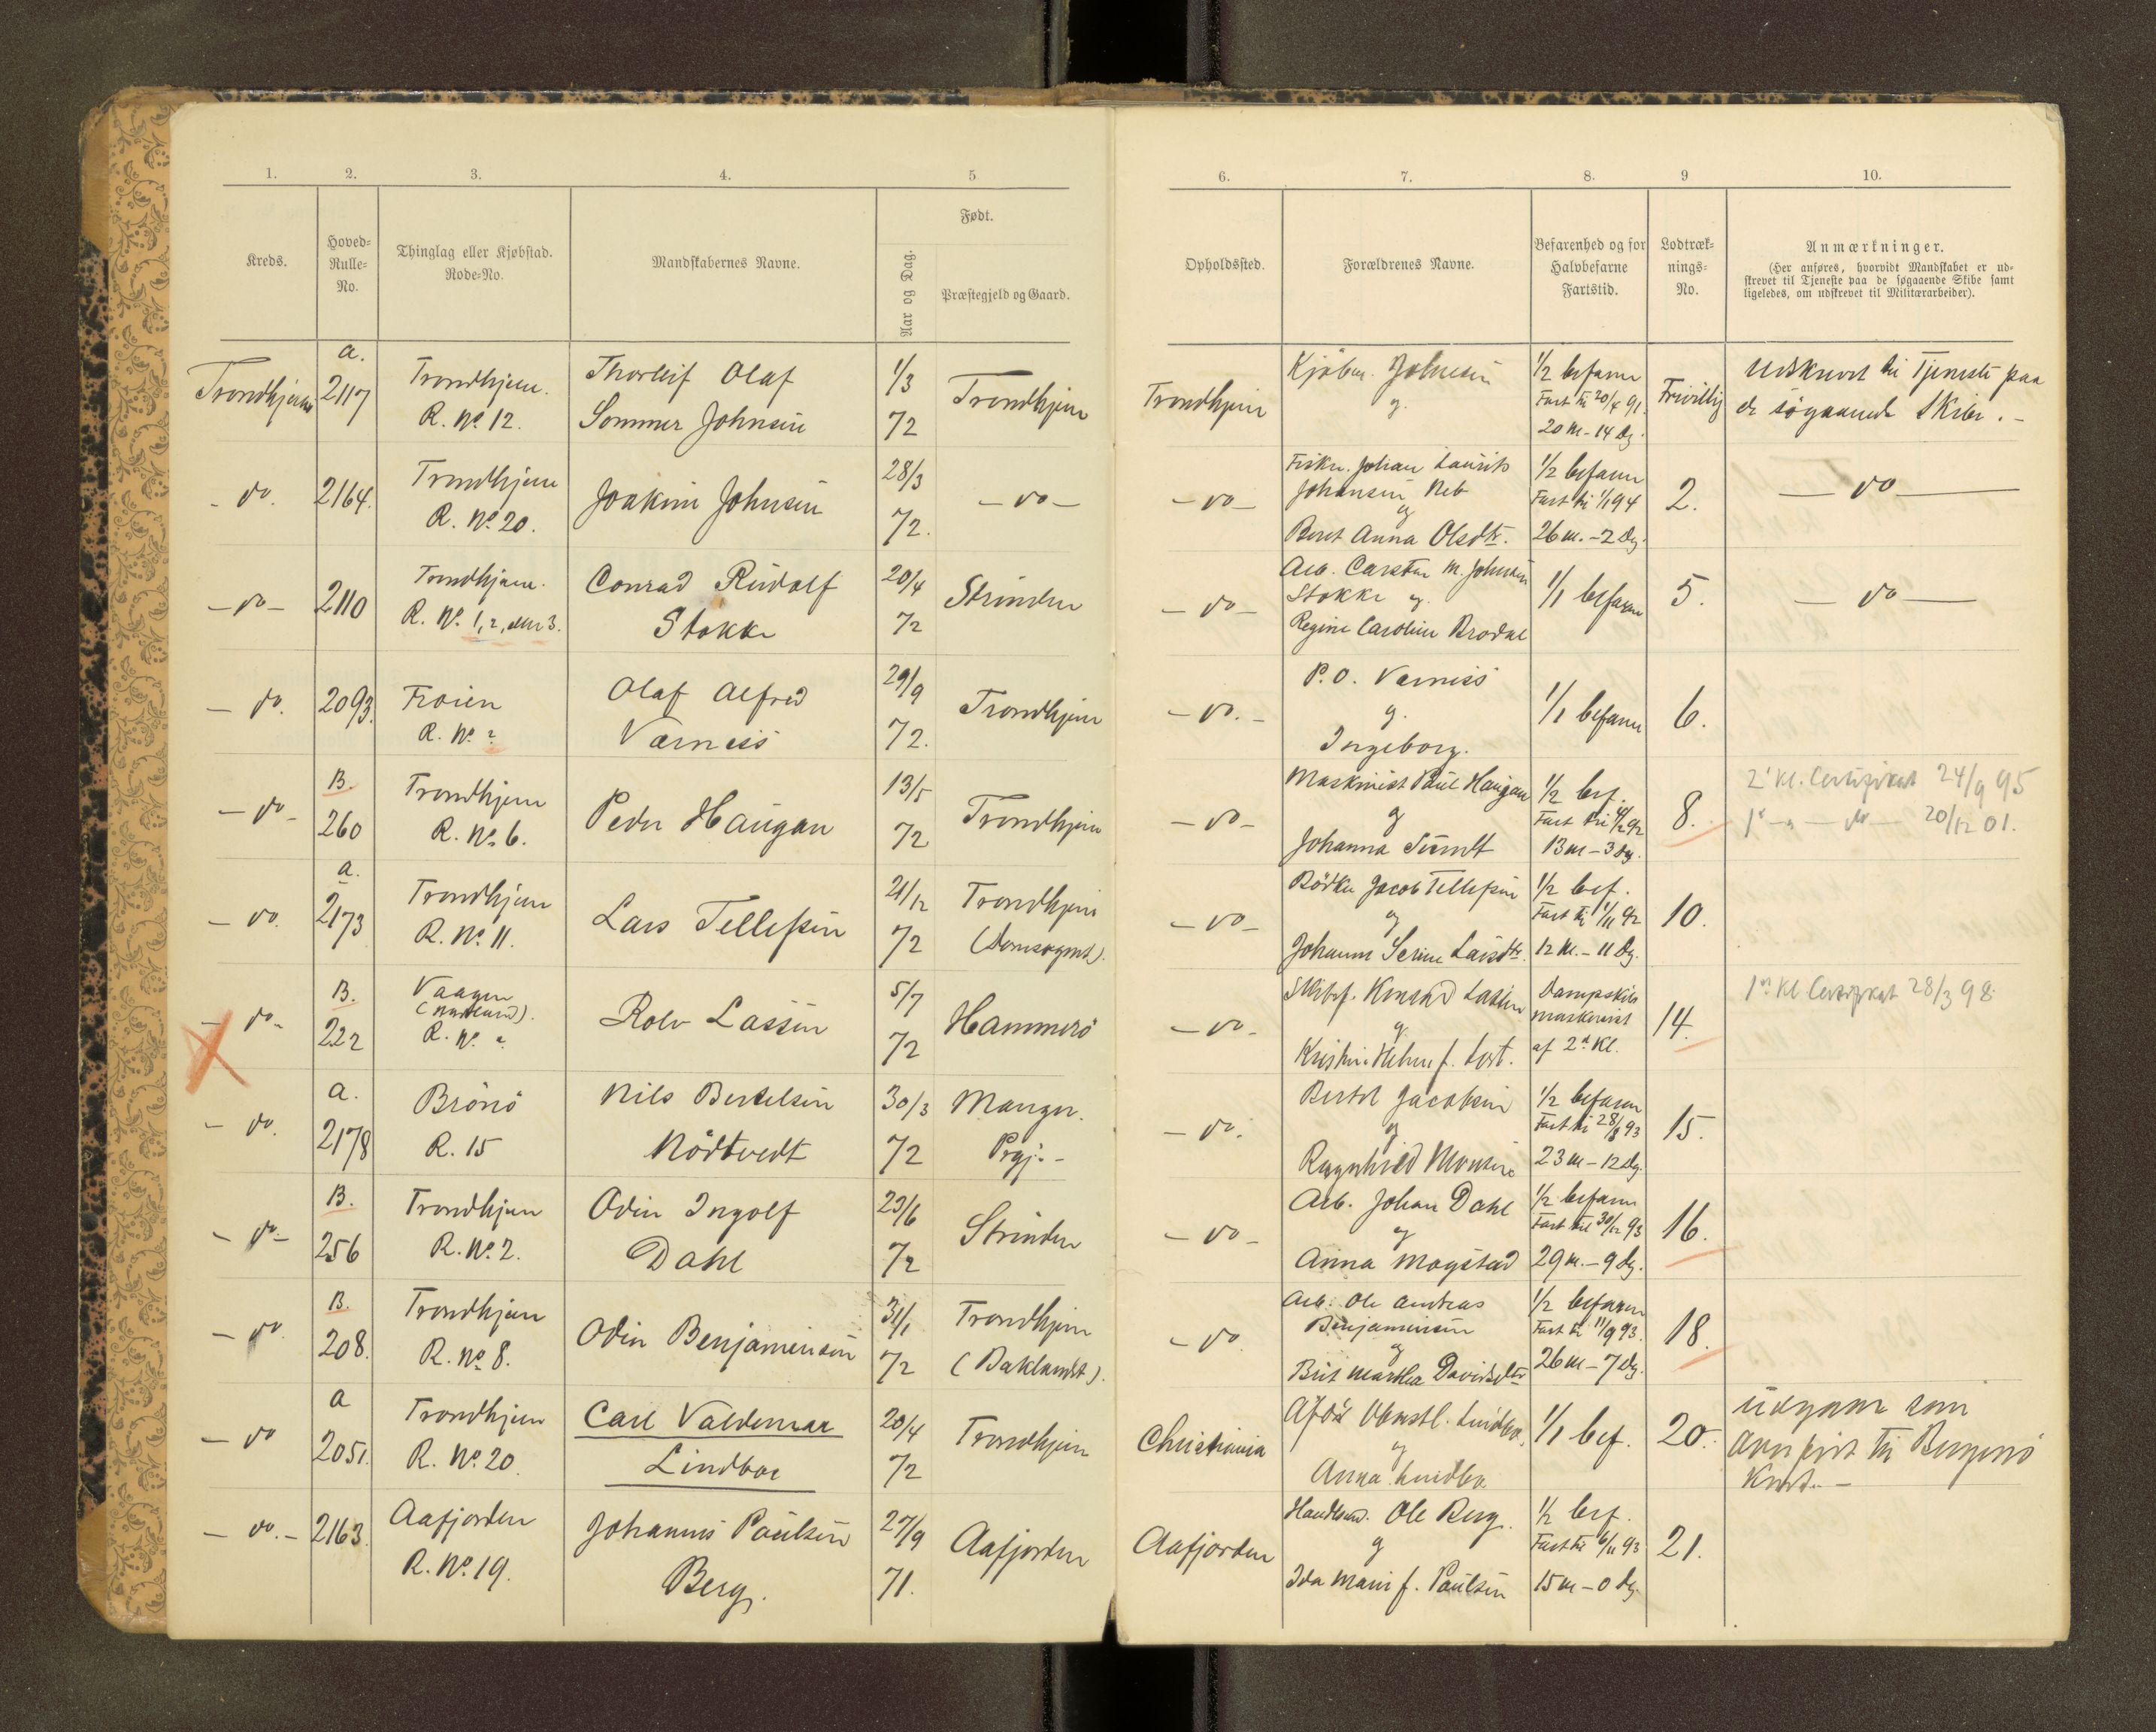 1. 2. 3. 4. 5 6. 7. 8. 9 10.
Kreds.
Hoved-
Rulle-
No.
Thinglag eller Kjøbstad.
Rode-No.
Mandskabernes Navne.
Født.
Aar og Dag.
Præstegjeld og Gaard.
Opholdssted.
Forældrenes Navne.
Befarenhed og for
Halvbefarne
Fartstid.
Lodtræk-
nings-
No.
Anmærkninger.
(Her anføres, hvorvidt Mandskabet er ud-
skrevet til Tjeneste paa de søgaaende Skibe samt
ligeledes, om udskrevet til Militærarbeider).
Trondhjem
a.
2117
Trondhjem.
R. No 12.
Thorleif Olaf
Sommer Johnsen
1/3
72
Trondhjem
Trondhjem
Kjøbm. Johnsen
og
1/2 befaren
Fart til 20/4 91.
20 M - 14 Dg.
Frivillig
Udskrevet til Tjeneste paa
de søgaaende Skibe. -
- do.
2164.
Trondhjem
R. No 20.
Joakim Johnsen
28/3
72.
- do -
- do -
Fisker. Johan Laurits
Johansen
og
Beret Anna Olsdtr.
1/2 befaren
26 M. - 2 Dg.
2.
- do -
- do -
2110
Trondhjem.
R. No. 1, 2, eller 3.
Conrad Rudolf
Stokke
20/4
72
Strinden
- do -
Arb. Carsten M. Johnsen
Stokke og
Regine Caroline Brodal
1/1 befaren
5.
- do -
- do.
2093.
Froien
R. No ?
Olaf Alfred
Værness
29/9
72.
Trondhjem
- do. -
P. O. Værness
og
Ingeborg.
1/1 befaren
6.
- do -
B.
260
Trondhjem
R. No 6.
Peder Haugan
13/5
72
Trondhjem
- do -
Maskinist Paul Haugan
og
Johanna
1/2 bef.
13 M - 3 Dg.
8.
2' Kl. Certifikat 24/9 95
1' - " - do - 20/12 01.
- do.
a.
2173
Trondhjem
R. No 11.
Lars Tellefsen
21/12
72
Trondhjem
(Domsognet).
- do -
Bødker Jacob Tellefsen
og
Johanna Serine Larsdtr.
1/2 bef.
Fart til 1/11 92
12 M. - 11 Dg.
10.
- do -
B.
222
Vaagen
(Nordland).
R. No
Rolv Lassen
5/7
72
Hammerø
- do -
Skibsf. Konrad Lassen
og
Dampskibs
maskinist
af 2den Kl.
14.
1ste Kl. Certifikat 28/3 98.
- do.
a.
2178
Brönö
R. 15
Nils Bertelsen
Nödtvedt
30/3
72
Manger.
Prgj. -
- do.
Bertel Jacobsen
og
Ragnhild Monsen
1/2 befaren
Fart til 28/8 93
23 M - 12 Dg.
15.
- do -
B.
256
Trondhjem
R. No. 2.
Odin Ingolf
Dahl
23/6
72
Strinden
- do -
Arb. Johan Dahl
og
Anna Mogstad
1/2 befaren
Fart til 30/12 93
29 M. - 9 Dg.
16.
- do.
B.
208.
Trondhjem
R. No 8.
Odin Benjaminsen
31/1
72
Trondhjem
(Baklandet).
- do.
Arb. Ole Andreas
Benjaminsen
og
Brit Martha Davidsdtr
1/2 befaren
Fart til 11/9 93.
26 M - 7 Dg.
18.
- do
a
2051.
Trondhjem
R. No. 20.
Carl Valdemar
Lindboe
20/4
72
Trondhjem
Christiania
og
Anna Lindboe
1/1 bef.
20.
Udgaar som
overført til Bergens
Kreds. -
- do. -
2163.
Aafjorden
R. No. 19.
Johannes Paulsen
Berg.
27/9
71.
Aafjorden
Aafjorden
Ole Berg.
og
Ida Marie f. Paulsen
1/2 bef.
Fart til 6/11 93
15 M - 0 Dg
21.